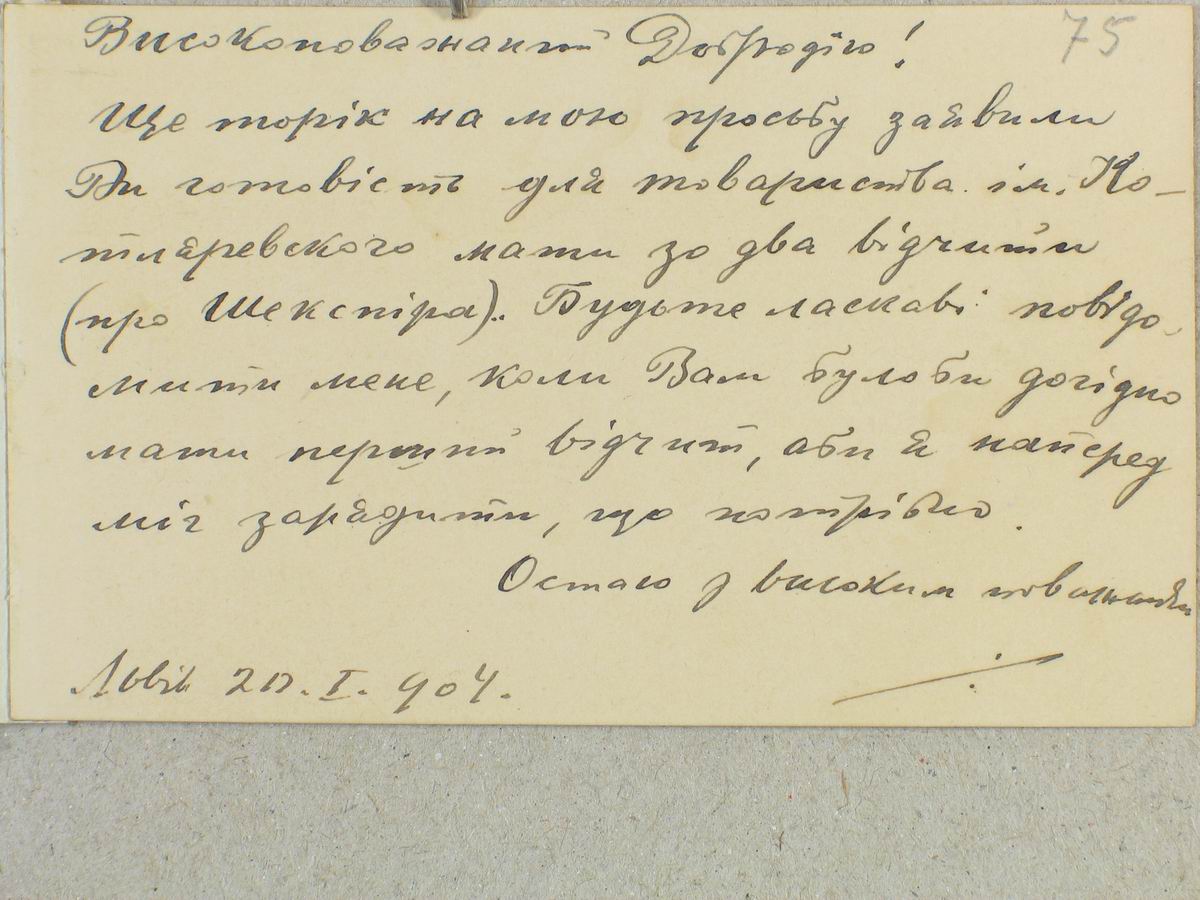 75
Високоповажаний Добродію!
Ще торік на мою просьбу заявили
Ви готовість для товариства ім. Ко-
тляревского мати зо два відчити
(про Шекспіра). Будьте ласкаві повідо-
мити мене, коли Вам було би догідно
мати перший відчит, аби я наперед
міг зарядити, що потрібно.
Остаю з високим поважанєм
Львів 20. I. 904.